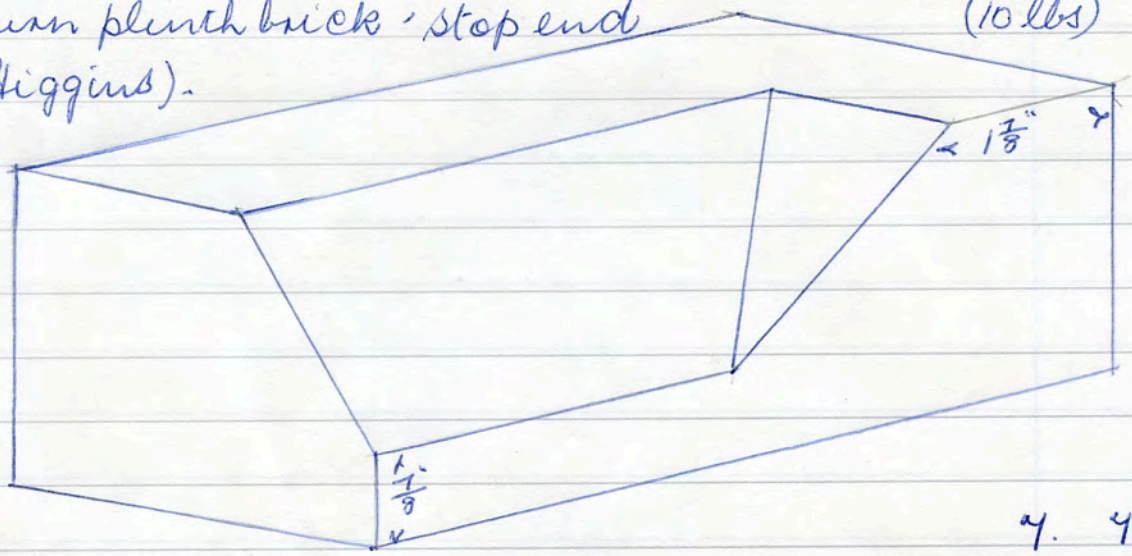 plinth brick · stop end (10 lbs)
Higgins).
1 7/8"
7/8"